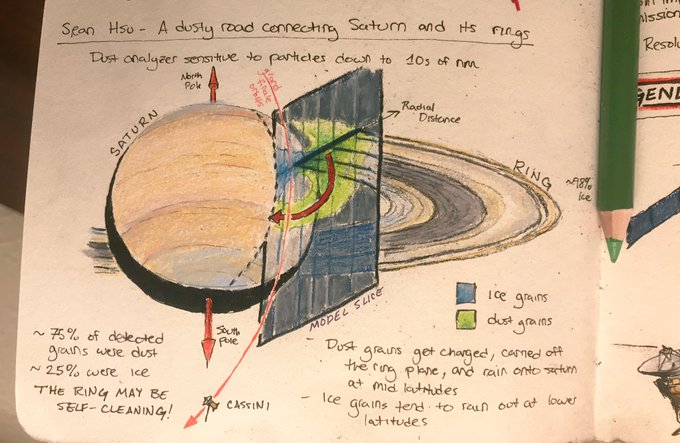 Sean Hsu - A dusty road connecting Saturn and its rings
Dust analyzer sensitive to particles down to 10s of nm
North
Pole
grand
finale
orbits
Radial
Distance
SATURN
RING
~98%
Ice
MODEL SLICE
South
Pole
CASSINI
Ice grains
dust grains
~ 75% of detected
grains were dust
~ 25% were ice
THE RING MAY BE
SELF-CLEANING!
Dust grains get charged, carried off
the ring plane, and rain onto saturn
at mid latitudes
- Ice grains tend to rain out at lower
latitudes
Resolu
GEND